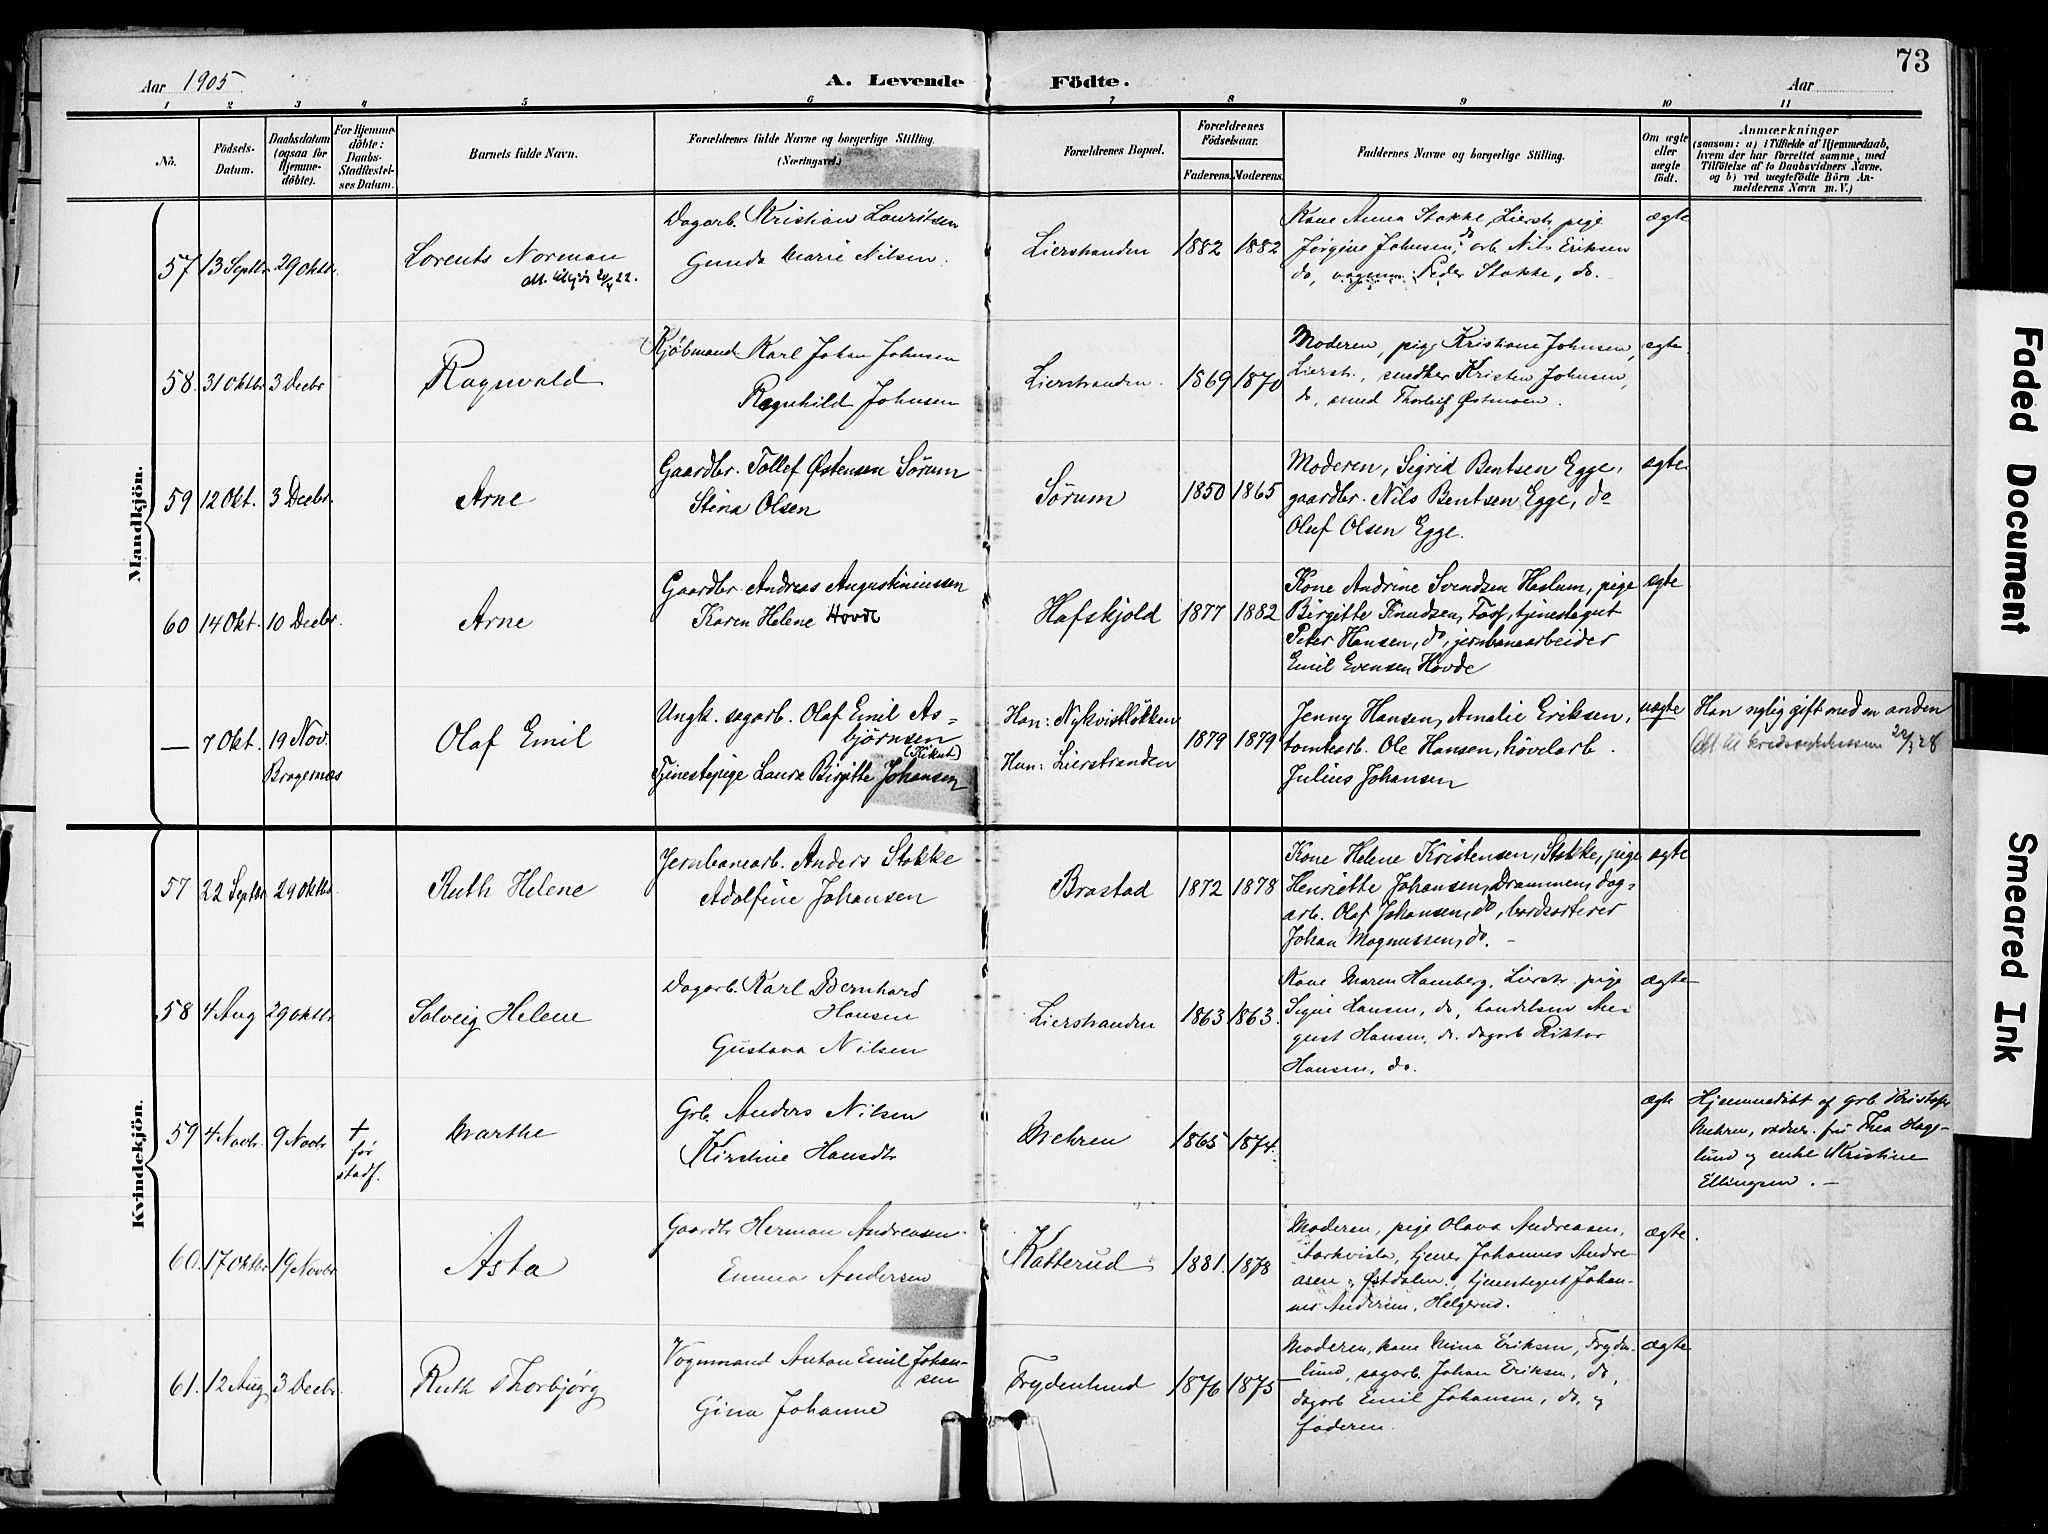 73
Aar 1905
A. Levende Födte.
Aar
1 2 3 4 5 6 7 8 9 10 11
No.
Födsels-Datum.
Daabsdatum (ogsaa for Hjemmedöbte).
For Hjemmedöbte: Daabs-Stadfæstelses Datum.
Barnets fulde Navn.
Forældrenes fulde Navne og borgerlige Stilling. (Næringsvei.)
Forældrenes Bopæl.
Forældrenes Födselsaar.
Faderens. Moderens.
Faddernes Navne og borgerlige Stilling.
Om ægte eller uægte födt.
Anmærkninger
(saasom: a) i Tilfælde af Hjemmedaab, hvem der har forrettet samme, med Tilföielse af to Daabsvidners Navne, og b) ved uægtefödte Börn Anmelderens Navn m. V.)
Mandkjön.
57 13 Septbr. 29 oktbr.
Lorents Norman
Dagarb. Kristian Lauritsen
Gunda Marie Nilsen.
Lierstranden 1882 1882
Kone Anna Stokke, Lierstr. pige
Jørgine Johnsen, do arb. Nils Eriksen
do, vognm. Peder Stokke, do.
ægte
58. 31 oktbr. 3 Decbr
Ragnvald
Kjøbmand Karl Johan Johnsen
Ragnhild Johnsen
Lierstranden. 1869 1870
Moderen, pige Kristiane Johnsen,
Lierstr., snedker Kristen Johnsen,
do, smed Thorleif Østmoen.
ægte
59 12 Okt. 3 Decbr.
Arne
Gaardbr. Tollef Østensen Sørum
Stina Olsen
Sørum 1850 1865
Moderen, Sigrid Bentsen Egge,
gaardbr. Nils Bentsen Egge, do
Oluf Olsen Egge.
ægte
60 14 Okt. 10 Decbr.
Arne
Gaardbr. Andreas Augustiniussen
Karen Helene Hovde
Hafskjold 1877 1882
Kone Andrine Svendsen Haslum, pige
Birgitte Knudsen, Fosf, tjenestegut
Peter Hansen, do, jernbanearbeider
Emil Evensen Hovde
ægte
— 7 Okt. 19 Nov.
Bragernæs
Olaf Emil
Ungk. sagarb. Olaf Emil As=
bjørnsen
Tjenestepige Laura Birgitte Johansen
Han: Nykvistløkken
Hun: Lierstranden
1879 1879
Jenny Hansen, Amalie Eriksen,
tomtearb. Ole Hansen, høvelarb.
Julius Johansen
uægte
Han nylig gift med en anden
Kvindekjön.
57 22 Septbr. 29 oktbr.
Ruth Helene
Jernbanearb. Anders Stokke
Adolfine Johansen
Brastad 1872 1878
Kone Helene Kristensen, Stokke, pige
Henriette Johansen, Drammen, dag=
arb. Olaf Johansen, do, bordsorterer
Johan Magnussen, do. -
ægte
58 4 Aug 29 oktbr
Solveig Helene
Dagarb. Karl Bernhard
Hansen
Gustava Nilsen
Lierstranden 1863 1863.
Kone Maren Hamberg, Lierstr. pige
Signe Hansen, do, handelsm Au-
gust Hansen, do. dagarb Viktor
Hansen, do.
ægte
59 4 Novbr. 9 Novbr
+
før
stadf.
Marthe
Grb. Anders Nilsen
Kirstine Hansdtr
Mehren 1865 1874.
ægte
Hjemmedøbt af grb. Kristofer
Mehren, vidner. fru Thea Hage-
lund og enke Kristine
Ellingsen. -
60. 17 oktbr. 19 Novbr
Asta
Gaardbr Herman Andreasen
Emma Andersen
Katterud 1881. 1878
Moderen, pige Olava Andreasen,
tjener Johannes Andre-
asen, Østdalen, tjenestegut Johan-
nes Andersen, Helgerud.
ægte.
61. 12 Aug 3 Decbr.
Ruth Thorbjørg
Vognmand Anton Emil Johan-
sen
Gina Johanne
Frydenlund 1876 1875
Moderen, kone Mina Eriksen, Fryden-
lund, sagarb. Johan Eriksen, do,
dagarb Emil Johansen, do, og
faderen.
ægte
Faded Document
Smeared Ink